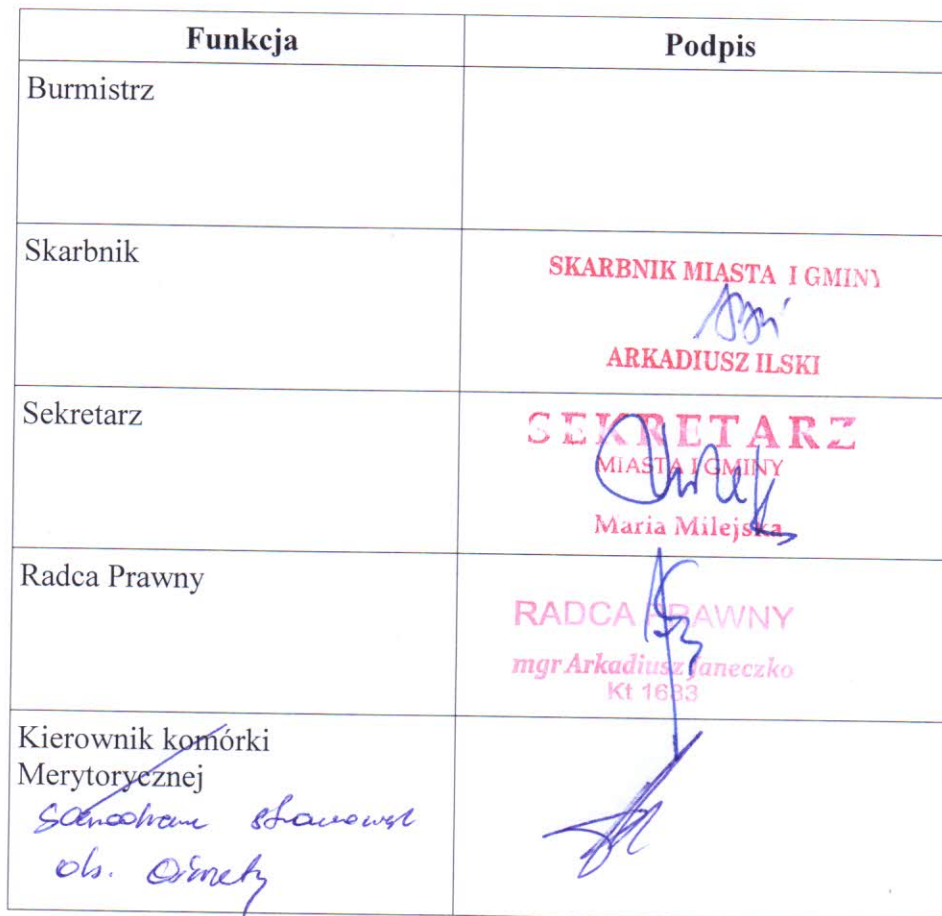 Funkcja Podpis
Burmistrz
Skarbnik
SKARBNIK MIASTA I GMINY
ARKADIUSZ ILSKI
Sekretarz
SEKRETARZ
MIASTA I GMINY
Maria Milejska
Radca Prawny
RADCA PRAWNY
mgr Arkadiusz Janeczko
Kt 1683
Kierownik komórki
Merytorycznej
ds. Oświaty